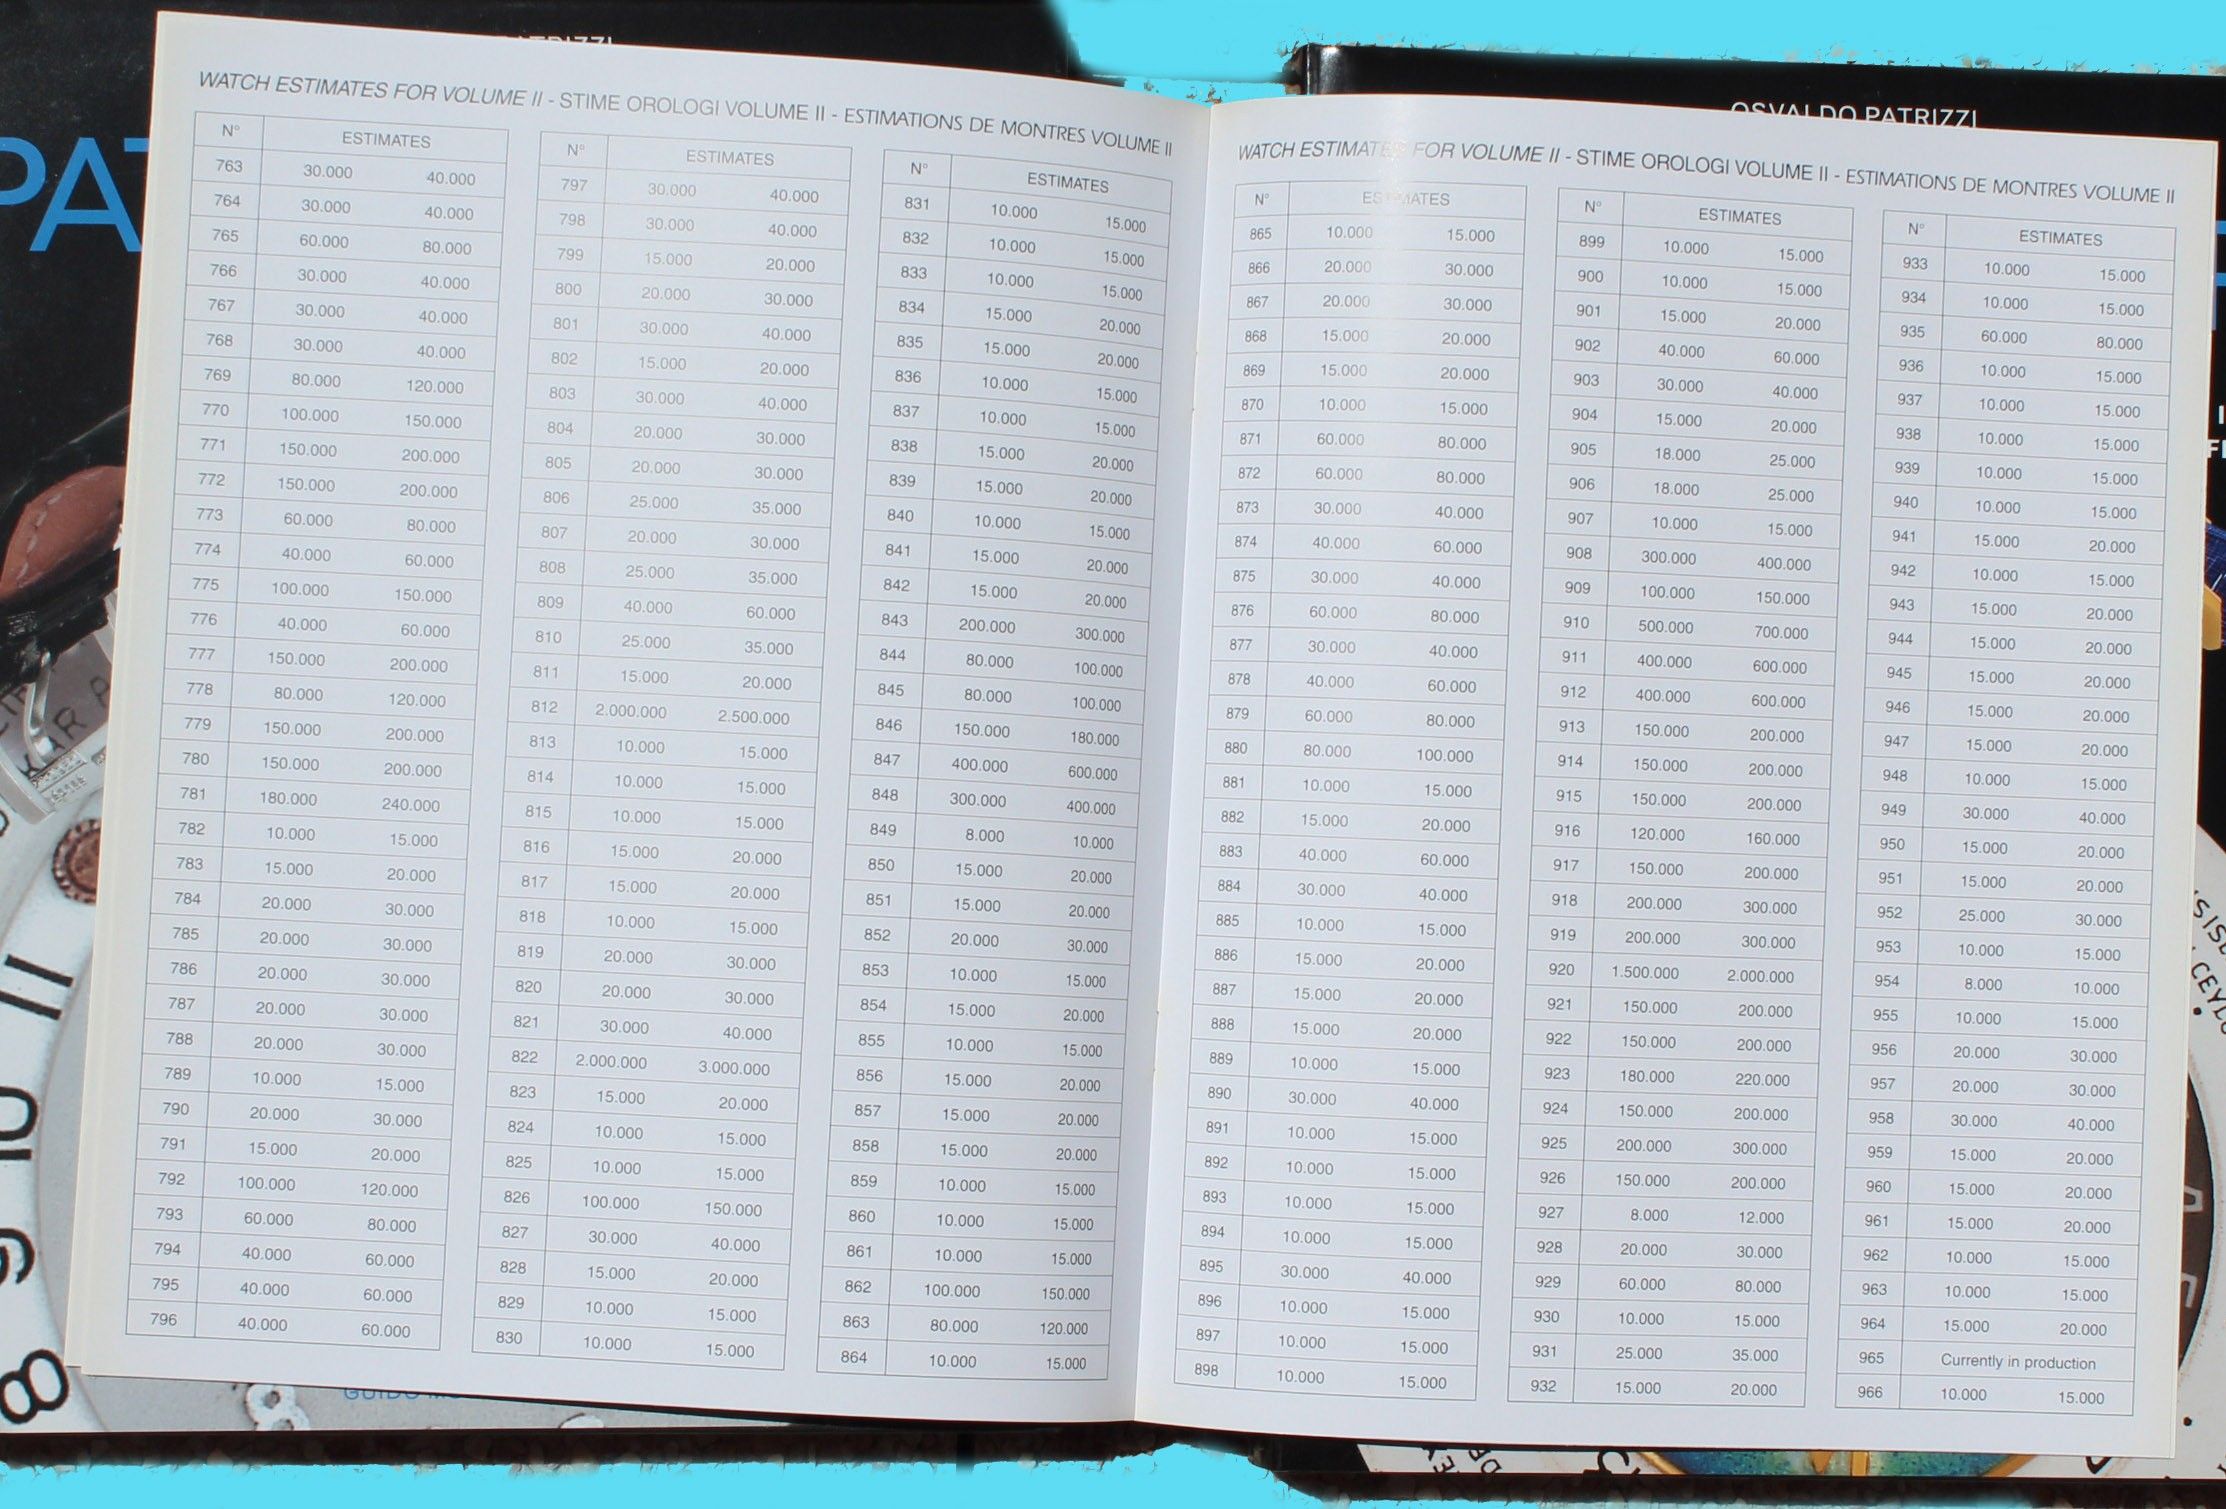 OSVALDO PATRIZZI
WATCH ESTIMATES FOR VOLUME II - STIME OROLOGI VOLUME II - ESTIMATIONS DE MONTRES VOLUME II
N° ESTIMATES
763 30.000 40.000
764 30.000 40.000
765 60.000 80.000
766 30.000 40.000
767 30.000 40.000
768 30.000 40.000
769 80.000 120.000
770 100.000 150.000
771 150.000 200.000
772 150.000 200.000
773 60.000 80.000
774 40.000 60.000
775 100.000 150.000
776 40.000 60.000
777 150.000 200.000
778 80.000 120.000
779 150.000 200.000
780 150.000 200.000
781 180.000 240.000
782 10.000 15.000
783 15.000 20.000
784 20.000 30.000
785 20.000 30.000
786 20.000 30.000
787 20.000 30.000
788 20.000 30.000
789 10.000 15.000
790 20.000 30.000
791 15.000 20.000
792 100.000 120.000
793 60.000 80.000
794 40.000 60.000
795 40.000 60.000
796 40.000 60.000
N° ESTIMATES
797 30.000 40.000
798 30.000 40.000
799 15.000 20.000
800 20.000 30.000
801 30.000 40.000
802 15.000 20.000
803 30.000 40.000
804 20.000 30.000
805 20.000 30.000
806 25.000 35.000
807 20.000 30.000
808 25.000 35.000
809 40.000 60.000
810 25.000 35.000
811 15.000 20.000
812 2.000.000 2.500.000
813 10.000 15.000
814 10.000 15.000
815 10.000 15.000
816 15.000 20.000
817 15.000 20.000
818 10.000 15.000
819 20.000 30.000
820 20.000 30.000
821 30.000 40.000
822 2.000.000 3.000.000
823 15.000 20.000
824 10.000 15.000
825 10.000 15.000
826 100.000 150.000
827 30.000 40.000
828 15.000 20.000
829 10.000 15.000
830 10.000 15.000
N° ESTIMATES
831 10.000 15.000
832 10.000 15.000
833 10.000 15.000
834 15.000 20.000
835 15.000 20.000
836 10.000 15.000
837 10.000 15.000
838 15.000 20.000
839 15.000 20.000
840 10.000 15.000
841 15.000 20.000
842 15.000 20.000
843 200.000 300.000
844 80.000 100.000
845 80.000 100.000
846 150.000 180.000
847 400.000 600.000
848 300.000 400.000
849 8.000 10.000
850 15.000 20.000
851 15.000 20.000
852 20.000 30.000
853 10.000 15.000
854 15.000 20.000
855 10.000 15.000
856 15.000 20.000
857 15.000 20.000
858 15.000 20.000
859 10.000 15.000
860 10.000 15.000
861 10.000 15.000
862 100.000 150.000
863 80.000 120.000
864 10.000 15.000
WATCH ESTIMATES FOR VOLUME II - STIME OROLOGI VOLUME II - ESTIMATIONS DE MONTRES VOLUME II
N° ESTIMATES
865 10.000 15.000
866 20.000 30.000
867 20.000 30.000
868 15.000 20.000
869 15.000 20.000
870 10.000 15.000
871 60.000 80.000
872 60.000 80.000
873 30.000 40.000
874 40.000 60.000
875 30.000 40.000
876 60.000 80.000
877 30.000 40.000
878 40.000 60.000
879 60.000 80.000
880 80.000 100.000
881 10.000 15.000
882 15.000 20.000
883 40.000 60.000
884 30.000 40.000
885 10.000 15.000
886 15.000 20.000
887 15.000 20.000
888 15.000 20.000
889 10.000 15.000
890 30.000 40.000
891 10.000 15.000
892 10.000 15.000
893 10.000 15.000
894 10.000 15.000
895 30.000 40.000
896 10.000 15.000
897 10.000 15.000
898 10.000 15.000
N° ESTIMATES
899 10.000 15.000
900 10.000 15.000
901 15.000 20.000
902 40.000 60.000
903 30.000 40.000
904 15.000 20.000
905 18.000 25.000
906 18.000 25.000
907 10.000 15.000
908 300.000 400.000
909 100.000 150.000
910 500.000 700.000
911 400.000 600.000
912 400.000 600.000
913 150.000 200.000
914 150.000 200.000
915 150.000 200.000
916 120.000 160.000
917 150.000 200.000
918 200.000 300.000
919 200.000 300.000
920 1.500.000 2.000.000
921 150.000 200.000
922 150.000 200.000
923 180.000 220.000
924 150.000 200.000
925 200.000 300.000
926 150.000 200.000
927 8.000 12.000
928 20.000 30.000
929 60.000 80.000
930 10.000 15.000
931 25.000 35.000
932 15.000 20.000
N° ESTIMATES
933 10.000 15.000
934 10.000 15.000
935 60.000 80.000
936 10.000 15.000
937 10.000 15.000
938 10.000 15.000
939 10.000 15.000
940 10.000 15.000
941 15.000 20.000
942 10.000 15.000
943 15.000 20.000
944 15.000 20.000
945 15.000 20.000
946 15.000 20.000
947 15.000 20.000
948 10.000 15.000
949 30.000 40.000
950 15.000 20.000
951 15.000 20.000
952 25.000 30.000
953 10.000 15.000
954 8.000 10.000
955 10.000 15.000
956 20.000 30.000
957 20.000 30.000
958 30.000 40.000
959 15.000 20.000
960 15.000 20.000
961 15.000 20.000
962 10.000 15.000
963 10.000 15.000
964 15.000 20.000
965 Currently in production
966 10.000 15.000